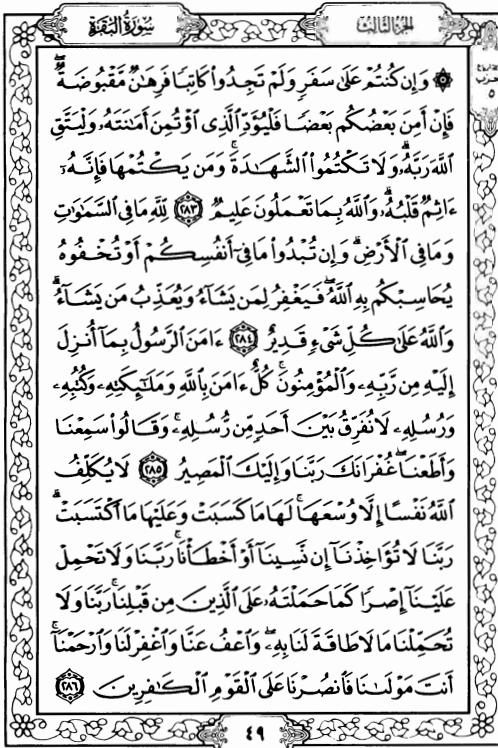 سُورَةُ البَقَرَةِ
الجُزْءُ الثَّالِثُ
حزب
٥
۞ وَإِن كُنتُمْ عَلَىٰ سَفَرٍ وَلَمْ تَجِدُوا۟ كَاتِبًا فَرِهَـٰنٌ مَّقْبُوضَةٌ ۖ
فَإِنْ أَمِنَ بَعْضُكُم بَعْضًا فَلْيُؤَدِّ ٱلَّذِى ٱؤْتُمِنَ أَمَـٰنَتَهُۥ وَلْيَتَّقِ
ٱللَّهَ رَبَّهُۥ ۗ وَلَا تَكْتُمُوا۟ ٱلشَّهَـٰدَةَ ۚ وَمَن يَكْتُمْهَا فَإِنَّهُۥٓ
ءَاثِمٌ قَلْبُهُۥ ۗ وَٱللَّهُ بِمَا تَعْمَلُونَ عَلِيمٌ ٢٨٣ لِّلَّهِ مَا فِى ٱلسَّمَـٰوَٰتِ
وَمَا فِى ٱلْأَرْضِ ۗ وَإِن تُبْدُوا۟ مَا فِىٓ أَنفُسِكُمْ أَوْ تُخْفُوهُ
يُحَاسِبْكُم بِهِ ٱللَّهُ ۖ فَيَغْفِرُ لِمَن يَشَآءُ وَيُعَذِّبُ مَن يَشَآءُ ۗ
وَٱللَّهُ عَلَىٰ كُلِّ شَىْءٍ قَدِيرٌ ٢٨٤ ءَامَنَ ٱلرَّسُولُ بِمَآ أُنزِلَ
إِلَيْهِ مِن رَّبِّهِۦ وَٱلْمُؤْمِنُونَ ۚ كُلٌّ ءَامَنَ بِٱللَّهِ وَمَلَـٰٓئِكَتِهِۦ وَكُتُبِهِۦ
وَرُسُلِهِۦ لَا نُفَرِّقُ بَيْنَ أَحَدٍ مِّن رُّسُلِهِۦ ۚ وَقَالُوا۟ سَمِعْنَا
وَأَطَعْنَا ۖ غُفْرَانَكَ رَبَّنَا وَإِلَيْكَ ٱلْمَصِيرُ ٢٨٥ لَا يُكَلِّفُ
ٱللَّهُ نَفْسًا إِلَّا وُسْعَهَا ۚ لَهَا مَا كَسَبَتْ وَعَلَيْهَا مَا ٱكْتَسَبَتْ ۗ
رَبَّنَا لَا تُؤَاخِذْنَآ إِن نَّسِينَآ أَوْ أَخْطَأْنَا ۚ رَبَّنَا وَلَا تَحْمِلْ
عَلَيْنَآ إِصْرًا كَمَا حَمَلْتَهُۥ عَلَى ٱلَّذِينَ مِن قَبْلِنَا ۚ رَبَّنَا وَلَا
تُحَمِّلْنَا مَا لَا طَاقَةَ لَنَا بِهِۦ ۖ وَٱعْفُ عَنَّا وَٱغْفِرْ لَنَا وَٱرْحَمْنَآ ۚ
أَنتَ مَوْلَىٰنَا فَٱنصُرْنَا عَلَى ٱلْقَوْمِ ٱلْكَـٰفِرِينَ ٢٨٦
٤٩